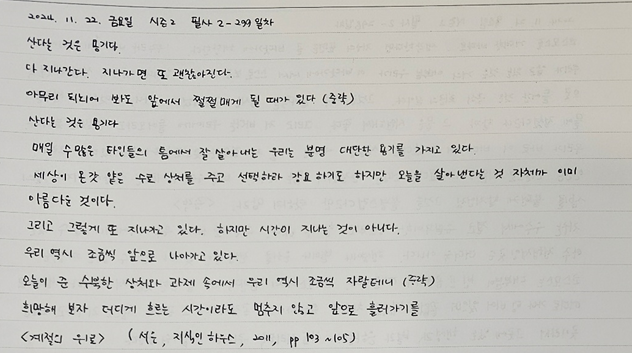 2024. 11. 22. 금요일 시즌2 필사 2-299일차
산다는 것은 용기다.
다 지나간다. 지나가면 또 괜찮아진다.
아무리 되뇌어 봐도 앞에서 쩔쩔매게 될 때가 있다 (중략)
산다는 것은 용기다
매일 수많은 타인들의 틈에서 잘 살아내는 우리는 분명 대단한 용기를 가지고 있다.
세상이 온갖 얕은 수로 상처를 주고 선택하라 강요하기도 하지만 오늘을 살아낸다는 것 자체가 이미
아름다운 것이다.
그리고 그렇게 또 지나가고 있다. 하지만 시간이 지나는 것이 아니다.
우리 역시 조금씩 앞으로 나아가고 있다.
오늘이 준 수북한 상처와 과제 속에서 우리 역시 조금씩 자랄테니 (중략)
희망해 보자 더디게 흐르는 시간이라도 멈추지 않고 앞으로 흘러가기를
<계절의 위로> (서은, 지식인하우스, 2011, pp 103~105)